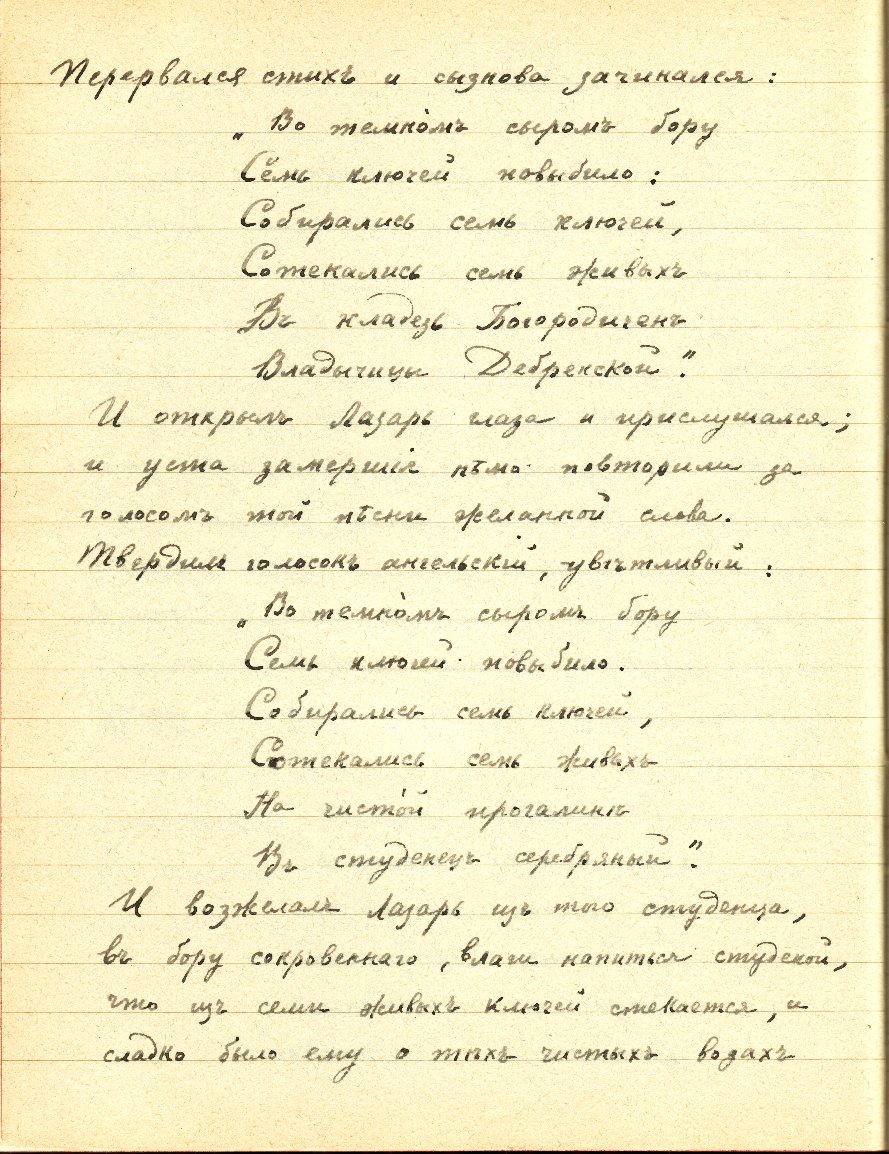 Перервался стихъ и сызнова зачинался:
„Во темно̀мъ сыромъ бору
Семь ключей повыбило:
Собирались семь ключей,
Сотекались семь живыхъ
Въ кладезь Богородиченъ
Владычицы Дебренской".
И открылъ Лазарь глаза и прислушался;
и уста замершія нѣмо повторили за
голосомъ той пѣсни желанной слова.
Твердилъ голосокъ ангельскій, увѣтливый:
„Во темно̀мъ сыромъ бору
Семь ключей повыбило.
Собирались семь ключей,
Сотекались семь живыхъ
На чисто́й прогалинѣ
Въ студенецъ серебряный".
И возжелалъ Лазарь изъ того студенца,
въ бору сокровеннаго, влаги напиться студеной,
что изъ семи живыхъ ключей стекается, и
сладко было ему о тѣхъ чистыхъ водахъ